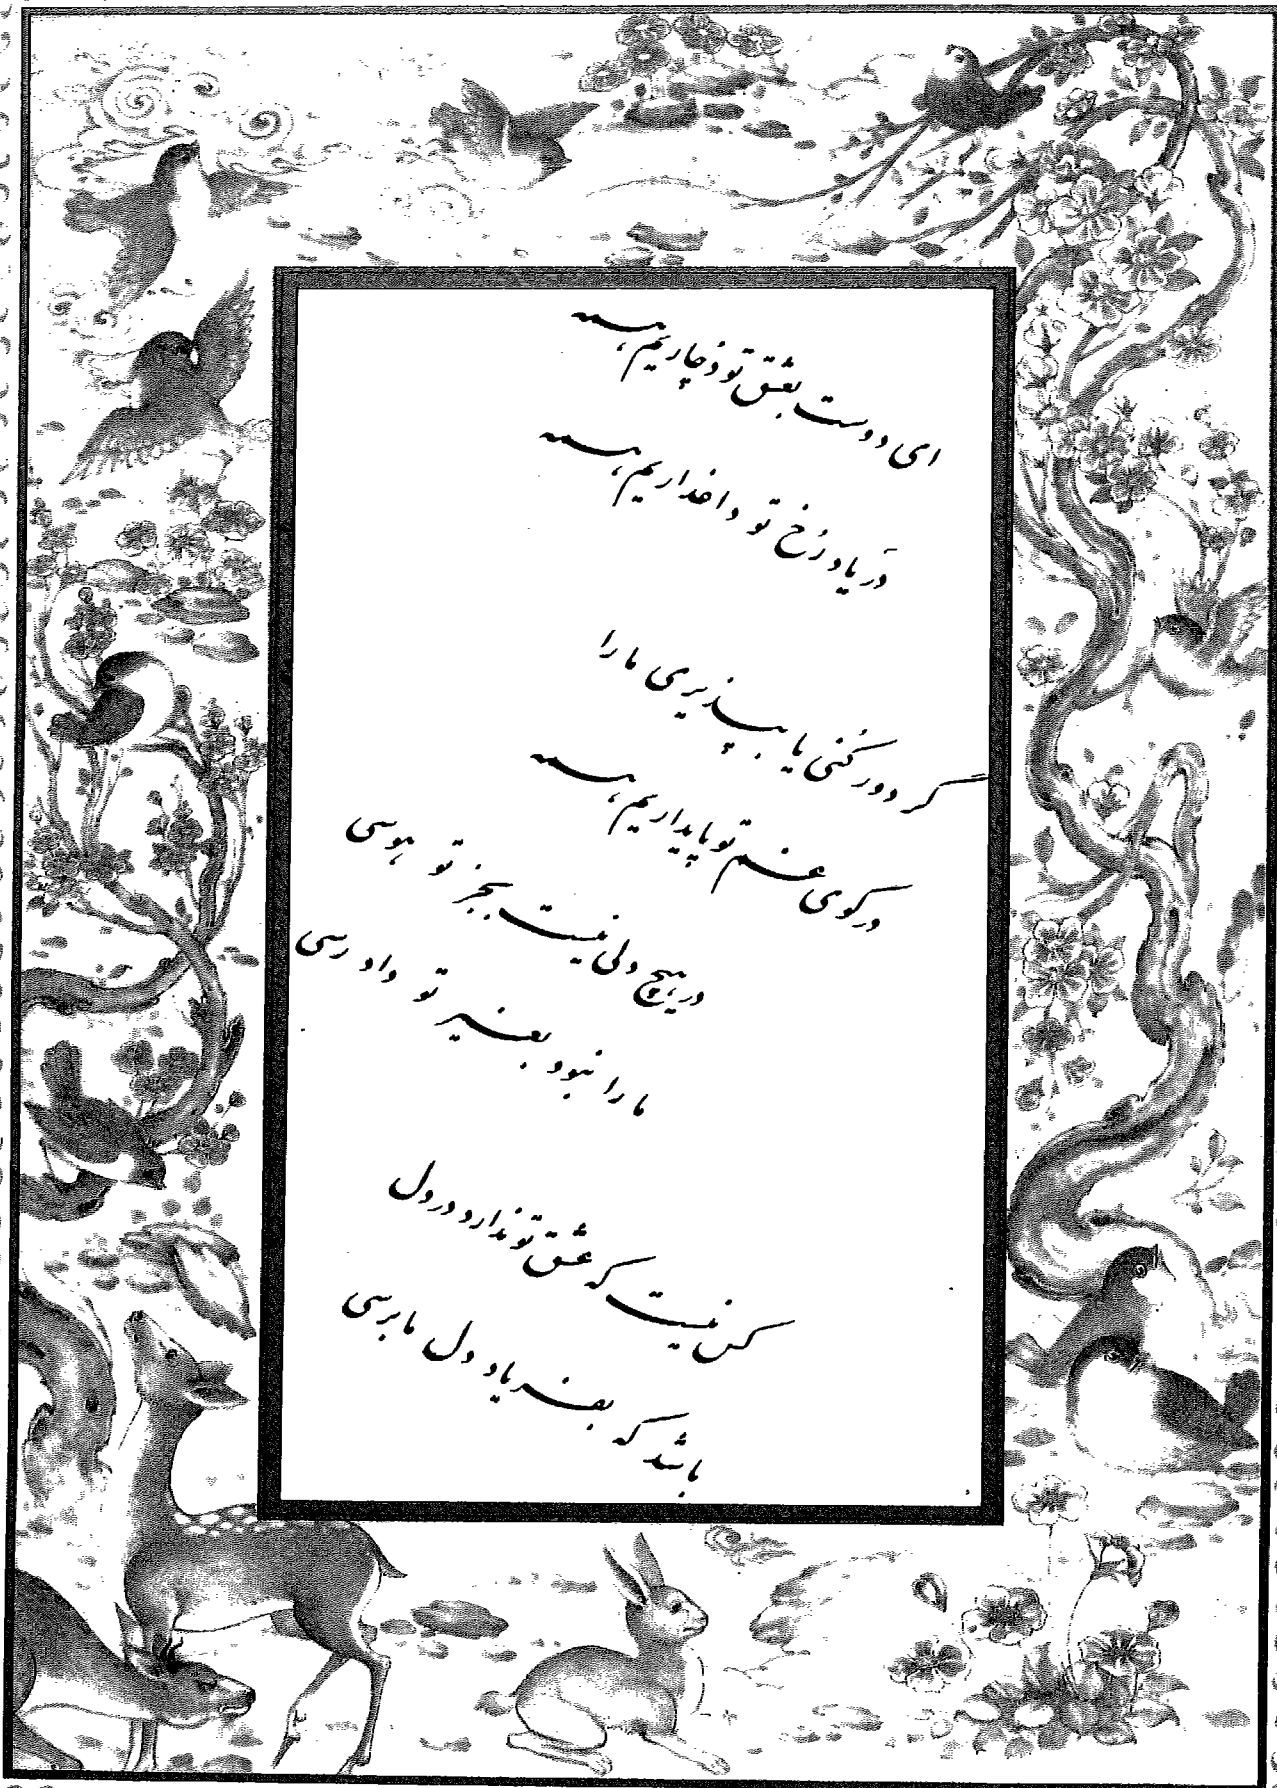 ای دوست بعشق تو دچاریم همه
در یاد رُخ تو داغداریم همه
گر دور کُنی یا بپذیری ما را
در کوی غم تو پایداریم همه
در هیچ دلی نیست بجز تو هوسی
ما را نبود بغیر تو دادرسی
کس نیست که عشق تو ندارد در دل
باشد که بفریاد دل ما برسی